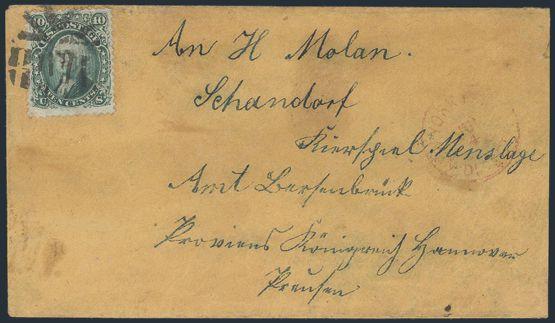 10 U.S. POSTAGE 10
TEN CENTS
An H Molan.
Schandorf
Kierspiel Menslage
Amt Bersenbrück
Proviens Königreich Hannover
Preusen